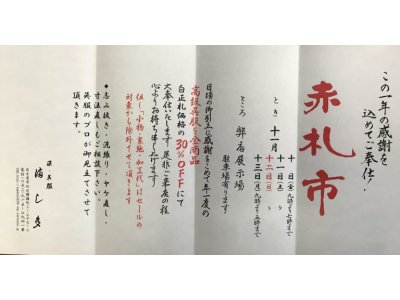 この一年の感謝を
込めてご奉仕!
赤札市
とき 十一月
十日(金)九時より七時まで
十一日(土)〃
十二日(日)〃
十三日(月)九時より五時まで
ところ 弊店展示場
駐車場有ります
日頃の御引立に感謝をこめて年一度の
高級呉服を全商品
白正札価格の30%OFFにて
大奉仕いたします 是非ご来店の程
心よりお待ち申し上げます
但し「小物・裏地・加工代」はセールの
対象から除外させて頂きます
◆しみ抜き・洗張り・ヤケ直し・
寸法直しもご相談下さい。
呉服のプロが御見立てさせて
頂きます。